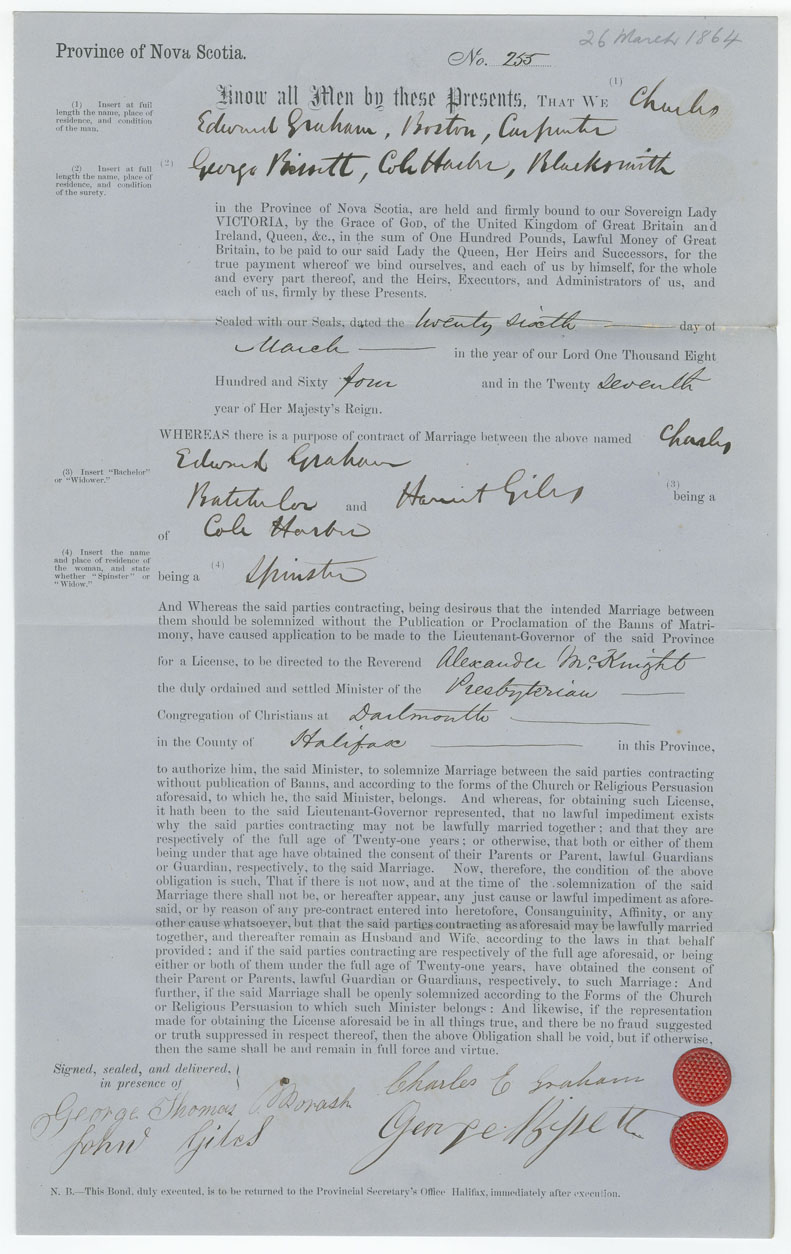 26 March 1864
Province of Nova Scotia.
No. 255
(1) Insert at full length the name, place of residence, and condition of the man.
Know all Men by these Presents, THAT WE (1) Charles
Edward Graham, Boston, Carpenter
(2) Insert at full length the name, place of residence, and condition of the surety.
(2) George Bissett, Cole Harbor, Blacksmith
in the Province of Nova Scotia, are held and firmly bound to our Sovereign Lady
VICTORIA, by the Grace of GOD, of the United Kingdom of Great Britain and
Ireland, Queen, &c., in the sum of One Hundred Pounds, Lawful Money of Great
Britain, to be paid to our said Lady the Queen, Her Heirs and Successors, for the
true payment whereof we bind ourselves, and each of us by himself, for the whole
and every part thereof, and the Heirs, Executors, and Administrators of us, and
each of us, firmly by these Presents.
Sealed with our Seals, dated the twenty sixth day of
March in the year of our Lord One Thousand Eight
Hundred and Sixty four and in the Twenty seventh
year of Her Majesty's Reign.
WHEREAS there is a purpose of contract of Marriage between the above named Charles
Edward Graham
(3) Insert "Bachelor" or "Widower."
(3) being a
Batchelor and Harriet Giles
of Cole Harbor
(4) Insert the name and place of residence of the woman, and state whether "Spinster" or "Widow."
being a (4) Spinster
And Whereas the said parties contracting, being desirous that the intended Marriage between
them should be solemnized without the Publication or Proclamation of the Banns of Matri-
mony, have caused application to be made to the Lieutenant-Governor of the said Province
for a License, to be directed to the Reverend Alexander McKnight
the duly ordained and settled Minister of the Presbyterian
Congregation of Christians at Dartmouth
in the County of Halifax in this Province,
to authorize him, the said Minister, to solemnize Marriage between the said parties contracting
without publication of Banns, and according to the forms of the Church or Religious Persuasion
aforesaid, to which he, the said Minister, belongs. And whereas, for obtaining such License,
it hath been to the said Lieutenant-Governor represented, that no lawful impediment exists
why the said parties contracting may not be lawfully married together; and that they are
respectively of the full age of Twenty-one years; or otherwise, that both or either of them
being under that age have obtained the consent of their Parents or Parent, lawful Guardians
or Guardian, respectively, to the said Marriage. Now, therefore, the condition of the above
obligation is such, That if there is not now, and at the time of the solemnization of the said
Marriage there shall not be, or hereafter appear, any just cause or lawful impediment as afore-
said, or by reason of any pre-contract entered into heretofore, Consanguinity, Affinity, or any
other cause whatsoever, but that the said parties contracting as aforesaid may be lawfully married
together, and thereafter remain as Husband and Wife, according to the laws in that behalf
provided; and if the said parties contracting are respectively of the full age aforesaid, or being
either or both of them under the full age of Twenty-one years, have obtained the consent of
their Parent or Parents, lawful Guardian or Guardians, respectively, to such Marriage: And
further, if the said Marriage shall be openly solemnized according to the Forms of the Church
or Religious Persuasion to which such Minister belongs: And likewise, if the representation
made for obtaining the License aforesaid be in all things true, and there be no fraud suggested
or truth suppressed in respect thereof, then the above Obligation shall be void, but if otherwise,
then the same shall be and remain in full force and virtue.
Signed, sealed, and delivered,
in presence of
Charles E Graham
George Thomas
George Bissett
John Giles
N. B.—This Bond, duly executed, is to be returned to the Provincial Secretary's Office Halifax, immediately after execution.